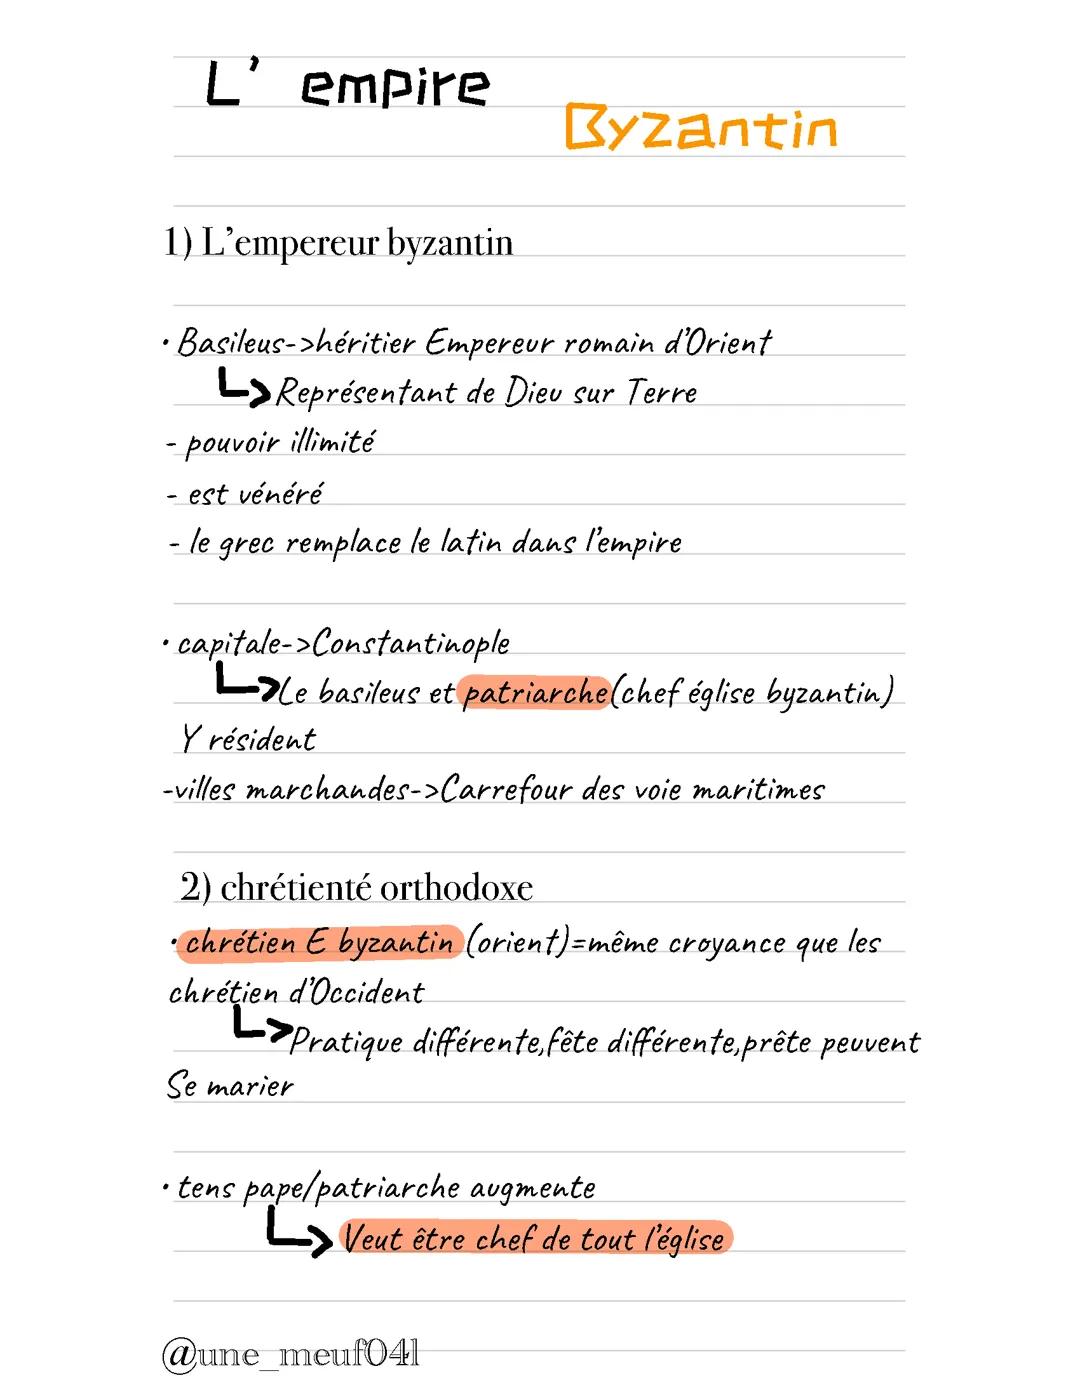 L' empire
Byzantin
1) L'empereur byzantin
• Basileus->héritier Empereur romain d'Orient
Représentant de Dieu sur Terre
- pouvoir illimité
- est vénéré
- le grec remplace le latin dans l'empire
• capitale->Constantinople
Le basileus et patriarche(chef église byzantin)
Y résident
-villes marchandes->Carrefour des voie maritimes
2) chrétienté orthodoxe
• chrétien E byzantin (orient)=même croyance que les
chrétien d'Occident
Pratique différente,fête différente,prête peuvent
Se marier
• tens pape/patriarche augmente
Veut être chef de tout l'église
@une_meuf041